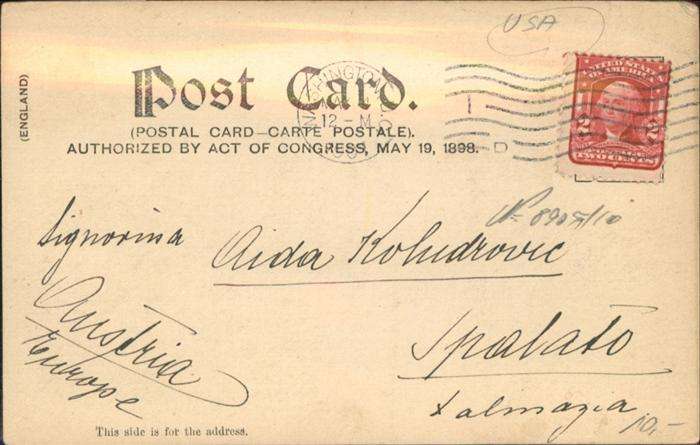 USA
(ENGLAND)
Post Card.
(POSTAL CARD—CARTE POSTALE).
AUTHORIZED BY ACT OF CONGRESS, MAY 19, 1898.
WASHINGTON, D
12-M
UNITED STATES
OF AMERICA
2 2
TWO CENTS
Signorina
Aida Koludrovic
Austria
Europe
Spalato
Dalmazia
10,-
This side is for the address.